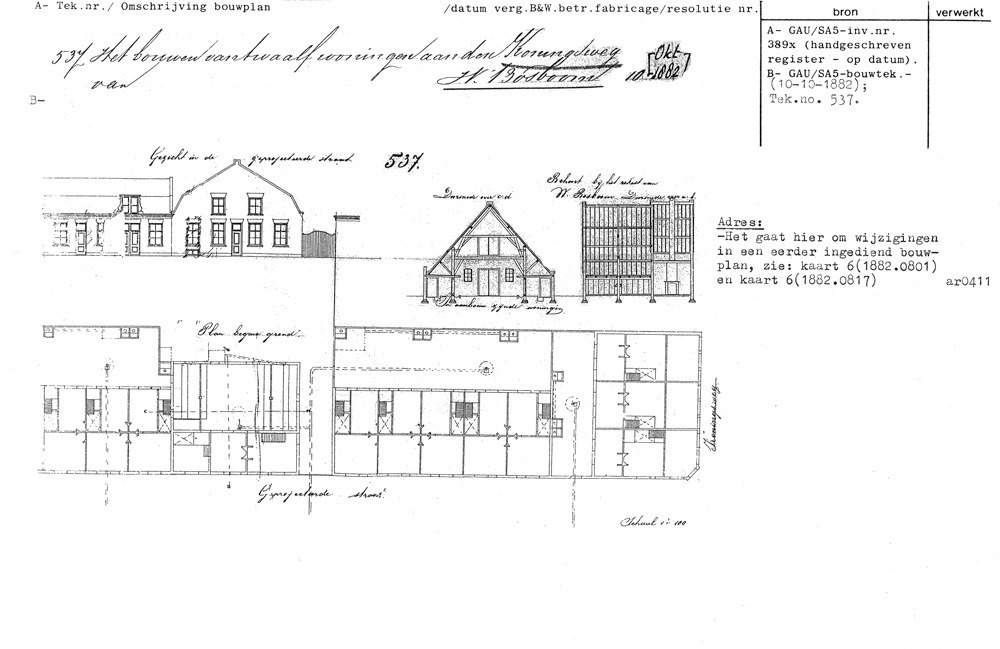 A- Tek.nr./ Omschrijving bouwplan
/datum verg.B&W.betr.fabricage/resolutie nr.
bron
verwerkt
537. Het bouwen van twaalf woningen aan den Koningsweg
van W. Bosboom
10 Okt 1882
A- GAU/SA5-inv.nr.
389x (handgeschreven
register - op datum).
B- GAU/SA5-bouwtek.-
(10-10-1882);
Tek.no. 537.
B-
Gezicht in de geprojecteerde straat
537.
Behoort bij het rekest van
W. Bosboom
Doorsnede
In aanbouw zijnde woningen
Adres:
-Het gaat hier om wijzigingen
in een eerder ingediend bouw-
plan, zie: kaart 6(1882.0801)
en kaart 6(1882.0817)
ar0411
Plan begane grond.
Koningsweg
Geprojecteerde straat
Schaal 1 à 100